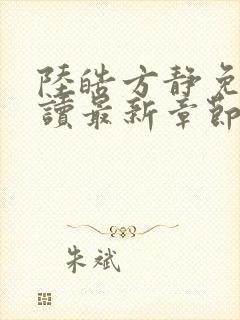 陸皓方靜免
讀最新章節
朱斌